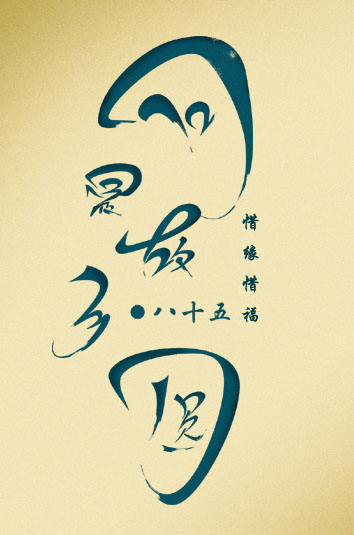 月是故乡圆
●八十五
惜缘惜福